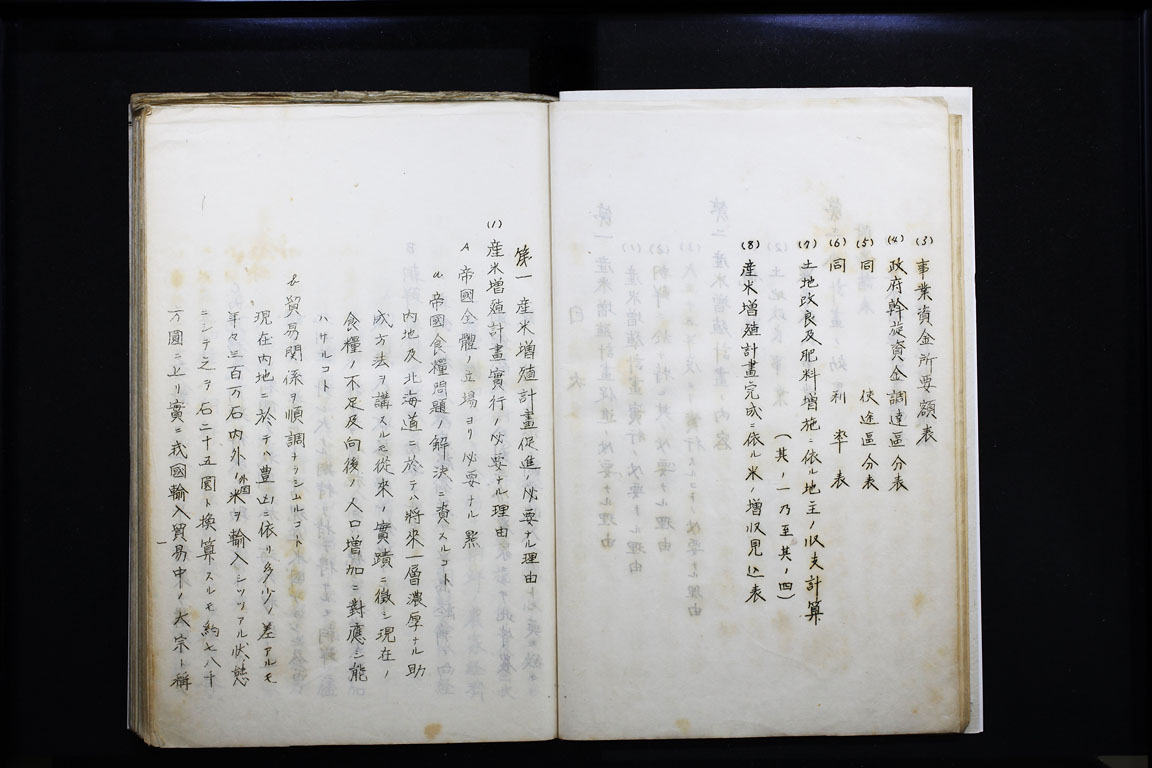 (3) 事業資金所要額表
(4) 政府斡旋資金調達區分表
(5) 同 使途區分表
(6) 同 利率表
(7) 土地改良及肥料增施ニ依ル地主ノ収支計算
(其ノ一乃至其ノ四)
(8) 産米增殖計畫完成ニ依ル米ノ增収見込表
第一 産米增殖計畫促進ノ必要ナル理由
(1) 産米增殖計畫實行ノ必要ナル理由
A 帝國全體ノ立場ヨリ必要ナル点
a 帝國食糧問題ノ解決ニ資スルコト
内地及北海道ニ於テハ將來一層濃厚ナル助
成方法ヲ講スルモ從來ノ實蹟ニ徴シ現在ノ
食糧ノ不足及向後ノ人口增加ニ對應シ能
ハサルコト
b 貿易関係ヲ順調ナラシムルコト
現在内地ニ於テハ豊凶ニ依リ多少ノ差アルモ
年々三百万石内外ノ外国米ヲ輸入シツツアル状態
ニシテ之ヲ石二十五圓ト換算スルモ約七八千
万圓ニ上リ實ニ我國輸入貿易中ノ大宗ト稱